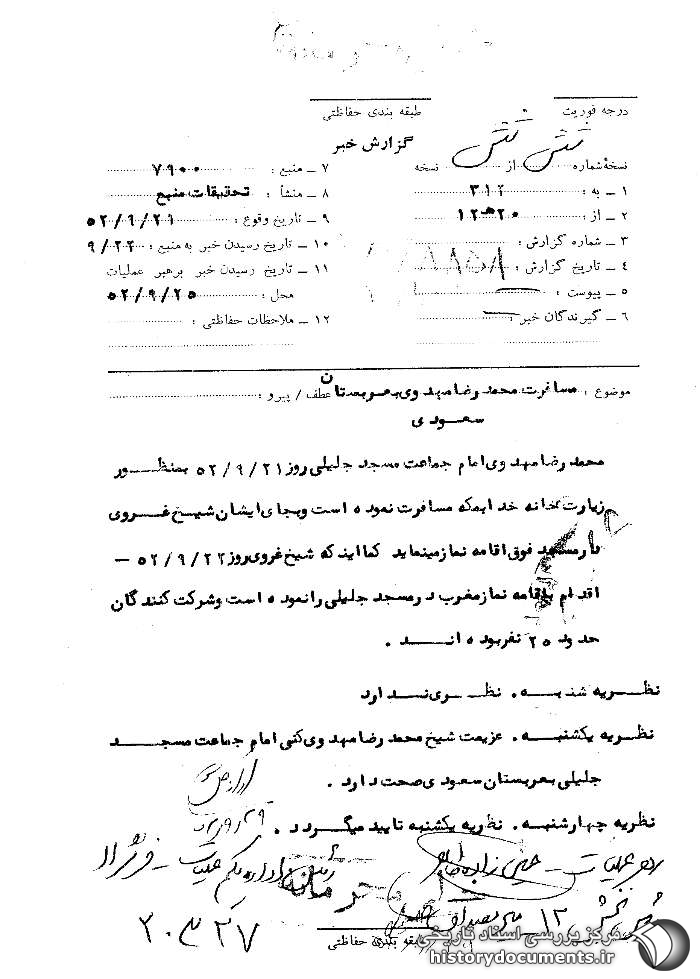 درجه فوریت
طبقه بندی حفاظتی
گزارش خبر
نسخهٔ شماره از نسخه
۱ – به : ۳۱۲
۲ – از : ۲۰هـ۱۲
۳ – شماره گزارش :
۴ – تاریخ گزارش :
۵ – پیوست :
۶ – گیرندگان خبر :
۷ – منبع : ۷۹۰۰
۸ – منشأ : تحقیقات منبع
۹ – تاریخ وقوع : ۵۲/۹/۲۱
۱۰ – تاریخ رسیدن خبر به منبع : ۹/۲۲
۱۱ – تاریخ رسیدن خبر برهبر عملیات
محل : ۵۲/۹/۲۵
۱۲ – ملاحظات حفاظتی :
موضوع : مسافرت محمد رضا مهدوی بعربستان عطف / پیرو :
سعودی
محمد رضا مهدوی امام جماعت مسجد جلیلی روز ۵۲/۹/۲۱ بمنظور
زیارت خانه خدا بمکه مسافرت نموده است وبجای ایشان شیخ غروی
در مسجد فوق اقامه نماز مینماید کما اینکه شیخ غروی روز ۵۲/۹/۲۲ –
اقدام باقامه نماز مغرب در مسجد جلیلی را نموده است وشرکت کنندگان
حدود ۲۵ نفر بوده اند .
نظریه شنبه . نظری ندارد
نظریه یکشنبه . عزیمت شیخ محمد رضا مهدوی کنی امام جماعت مسجد
جلیلی بعربستان سعودی صحت دارد .
نظریه چهارشنبه . نظریه یکشنبه تایید میگردد .
رهبر عملیات –
طبقه بندی حفاظتی
مرکز بررسی اسناد تاریخی
historydocuments.ir